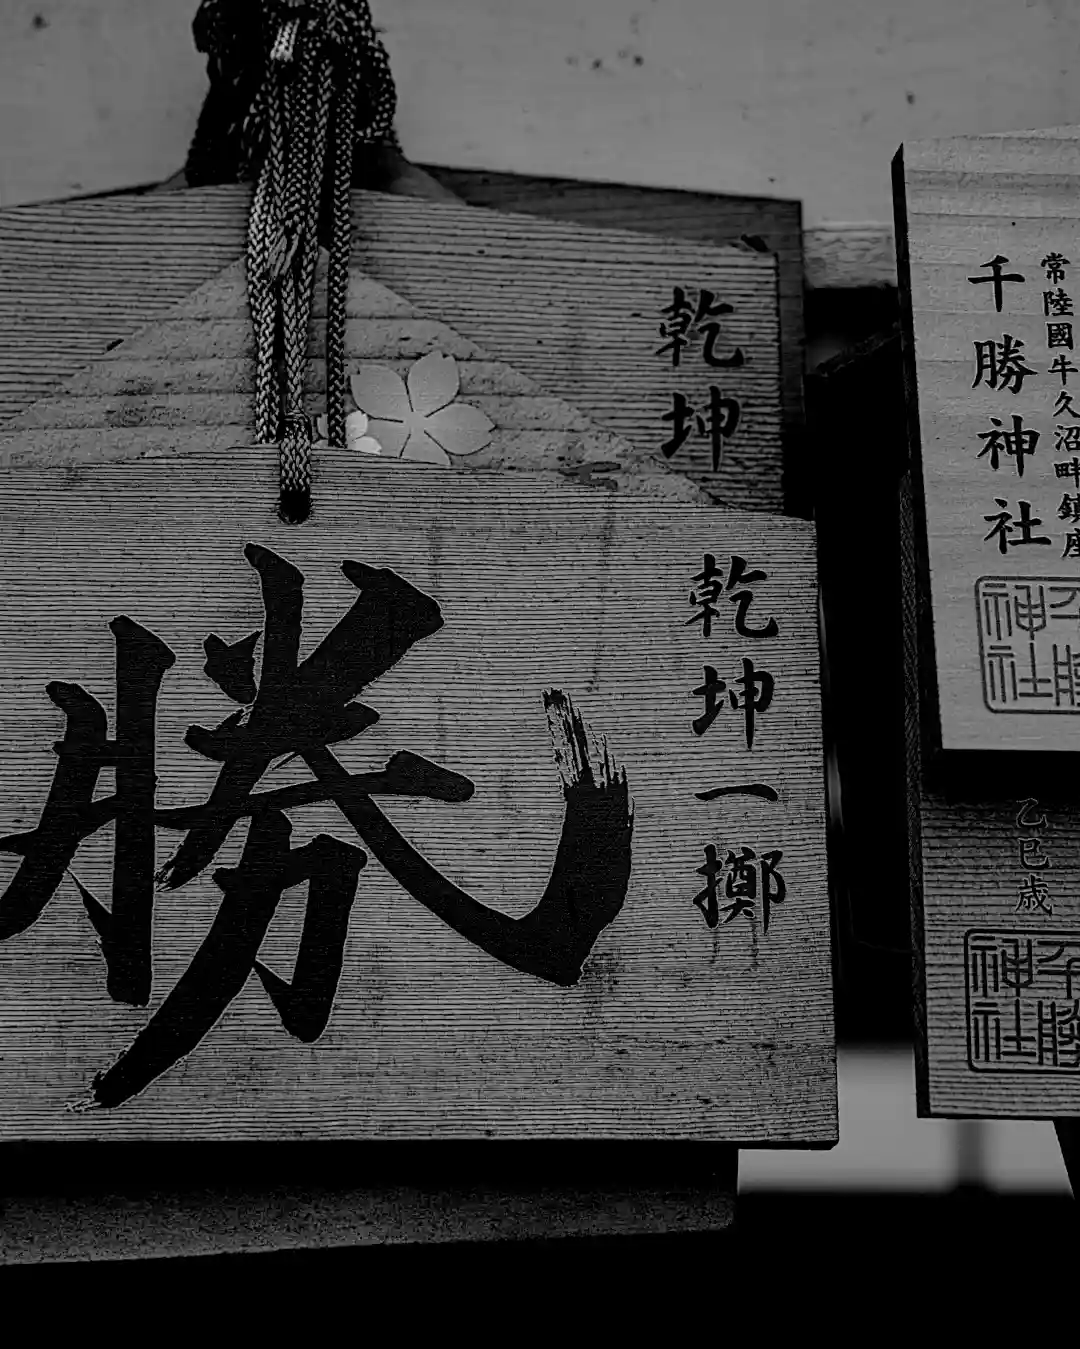 乾坤
勝
乾坤一擲
常陸國牛久沼畔鎮座
千勝神社
千勝神社
乙巳歳
千勝神社